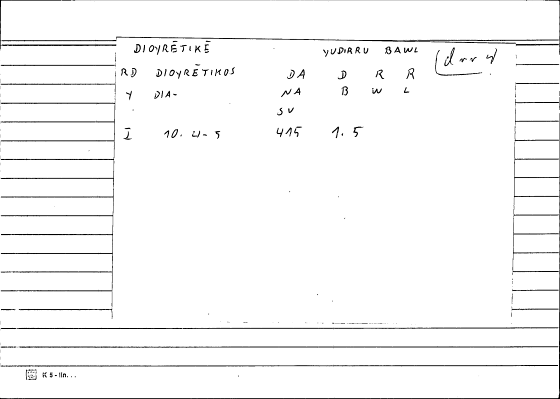 DIOYRĒTIKĒ YUDIRRU BAWL (drr y
RD DIOYRĒTIKOS DA D R R
Y DIA- NA B W L
SV
I 10. 4-5 415 1.5
K 5 - lin...